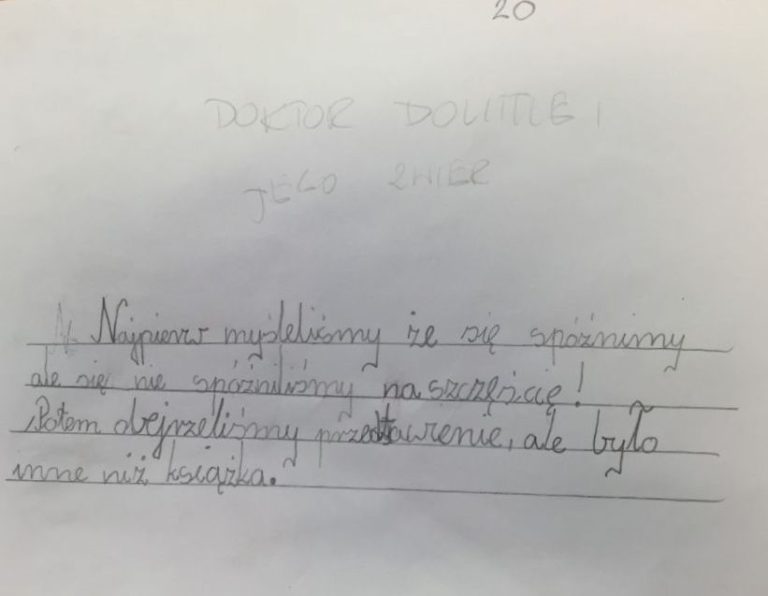 20
DOKTOR DOLITTLE I
JEGO ZWIER
Najpierw myśleliśmy że się spóźnimy
ale się nie spóźniliśmy na szczęście!
Potem obejrzeliśmy przedstawienie, ale było
inne niż książka.